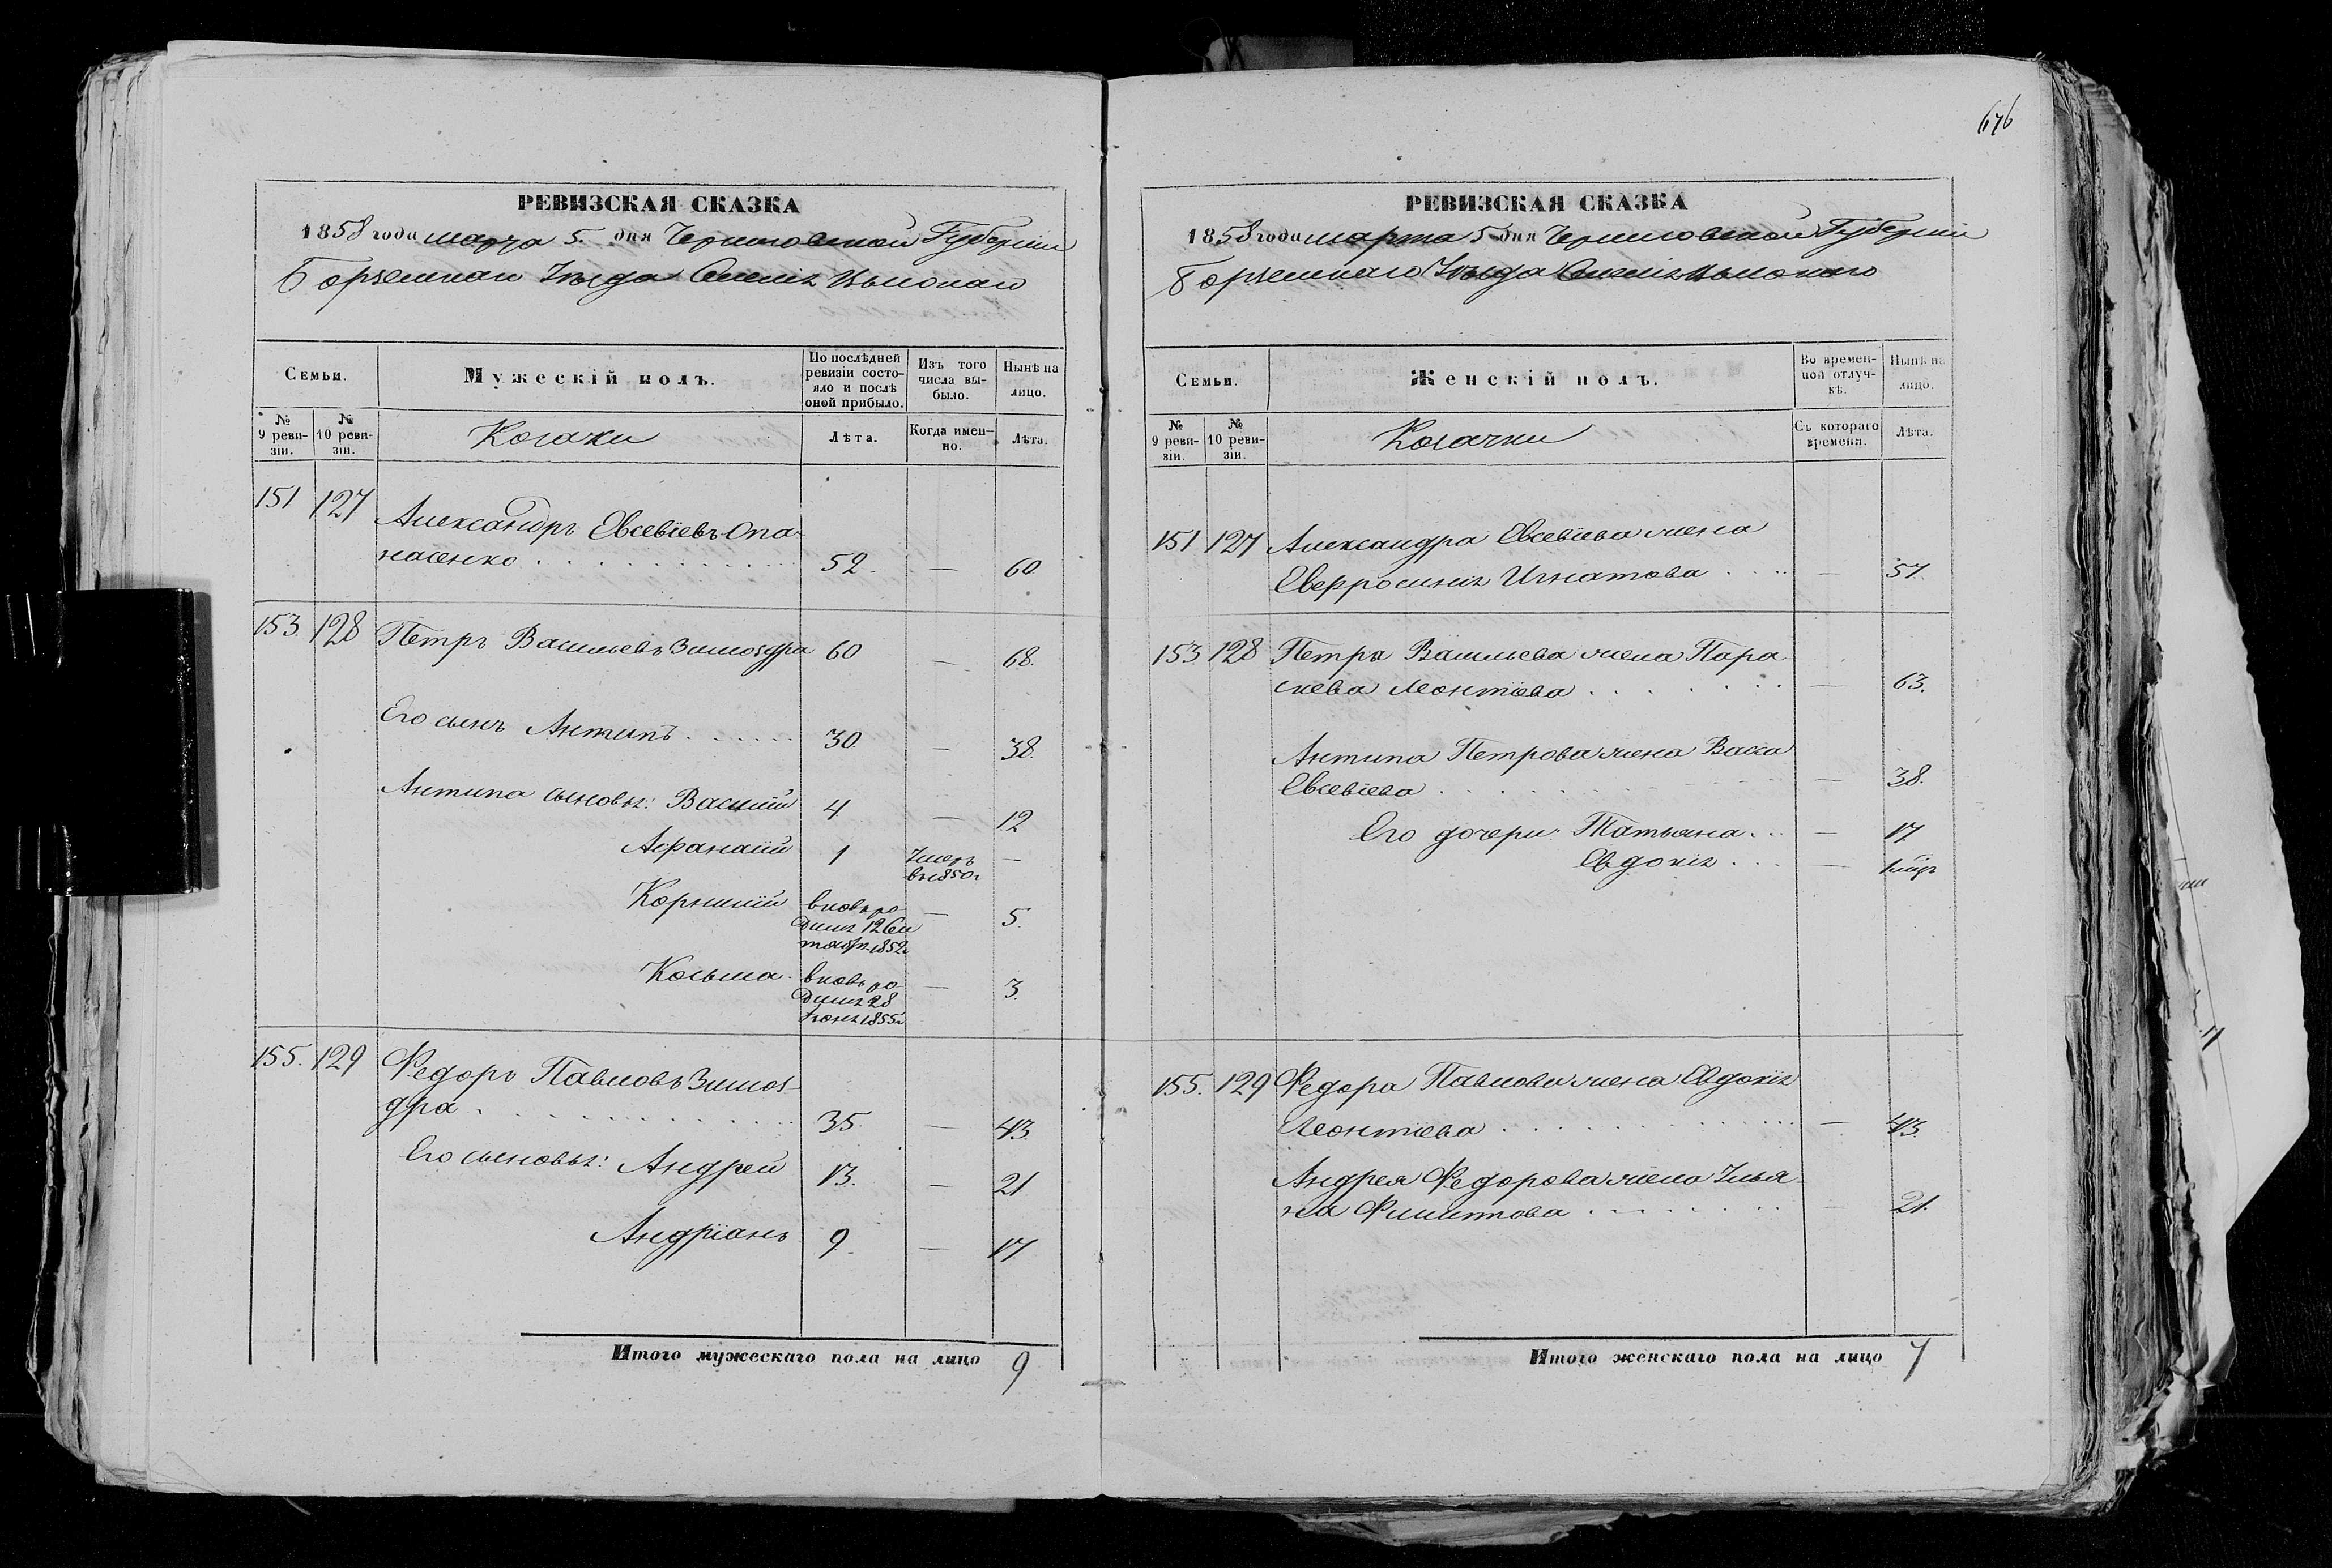 РЕВИЗСКАЯ СКАЗКА
1858 года марта 5 дня Черниговской Губернiи
Борзенскаго Уѣзда
Семьи.
Мужескiй полъ.
По послѣдней ревизiи состояло и послѣ оной прибыло.
Изъ того числа выбыло.
Нынѣ на лицо.
№ 9 ревизiи.
№ 10 ревизiи.
Козаки
Лѣта.
Когда именно.
Лѣта.
151 127 Александръ Евсевіевъ Опа-
насенко . . . 52. — 60
153. 128 Петръ Васильевъ Зимоздра 60 — 68.
Его сынъ Антипъ . . . 30. — 38.
Антипа сыновья: Василій 4 — 12
Афанасій 1 Умеръ —
въ 1850 г
Корнилій вновь ро- — 5.
дился 12 Сен
тября 1852 г
Косьма вновь ро- — 3.
дился 28
Іюня 1855 г
155. 129 Федоръ Павловъ Зимоз-
дра . . . 35. — 43.
Его сыновья: Андрей 13. — 21
Андріанъ 9. — 17
Итого мужескаго пола на лицо 9
676
РЕВИЗСКАЯ СКАЗКА
1858 года марта 5 дня Черниговской Губернiи
Борзенскаго Уѣзда
Семьи.
Женскiй полъ.
Во временной отлучкѣ.
Нынѣ на лицо.
№ 9 ревизiи.
№ 10 ревизiи.
Козачки
Съ котораго времени.
Лѣта.
151 127 Александра Евсевіева жена
Евфросинія Игнатова . . . — 57.
153 128 Петра Васильева жена Пара-
скева Леонтіева . . . — 63.
Антипа Петрова жена Васса
Евсевіева . . . — 38.
Его дочери: Татьяна . . . — 17
Евдокія . . . —
155. 129 Федора Павлова жена Евдокія
Леонтіева . . . — 43.
Андрея Федорова жена Улья-
на Филиппова . . . — 21.
Итого женскаго пола на лицо 7